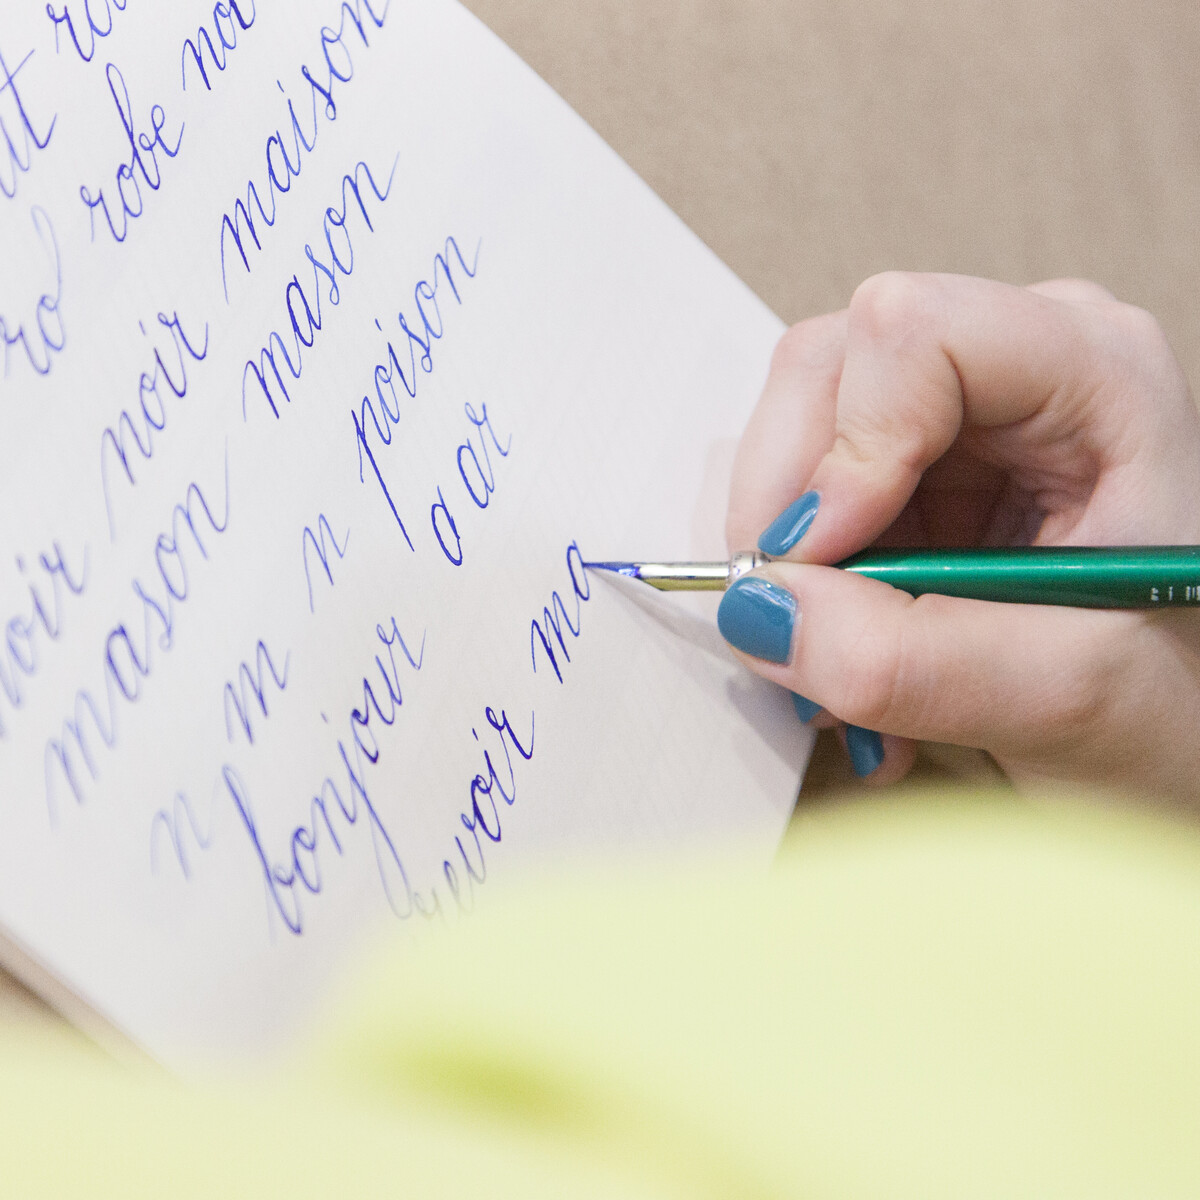 ro
ro robe noi
noir noir maison
mason mason
n m n poison
bonjour a ar
revoir mo